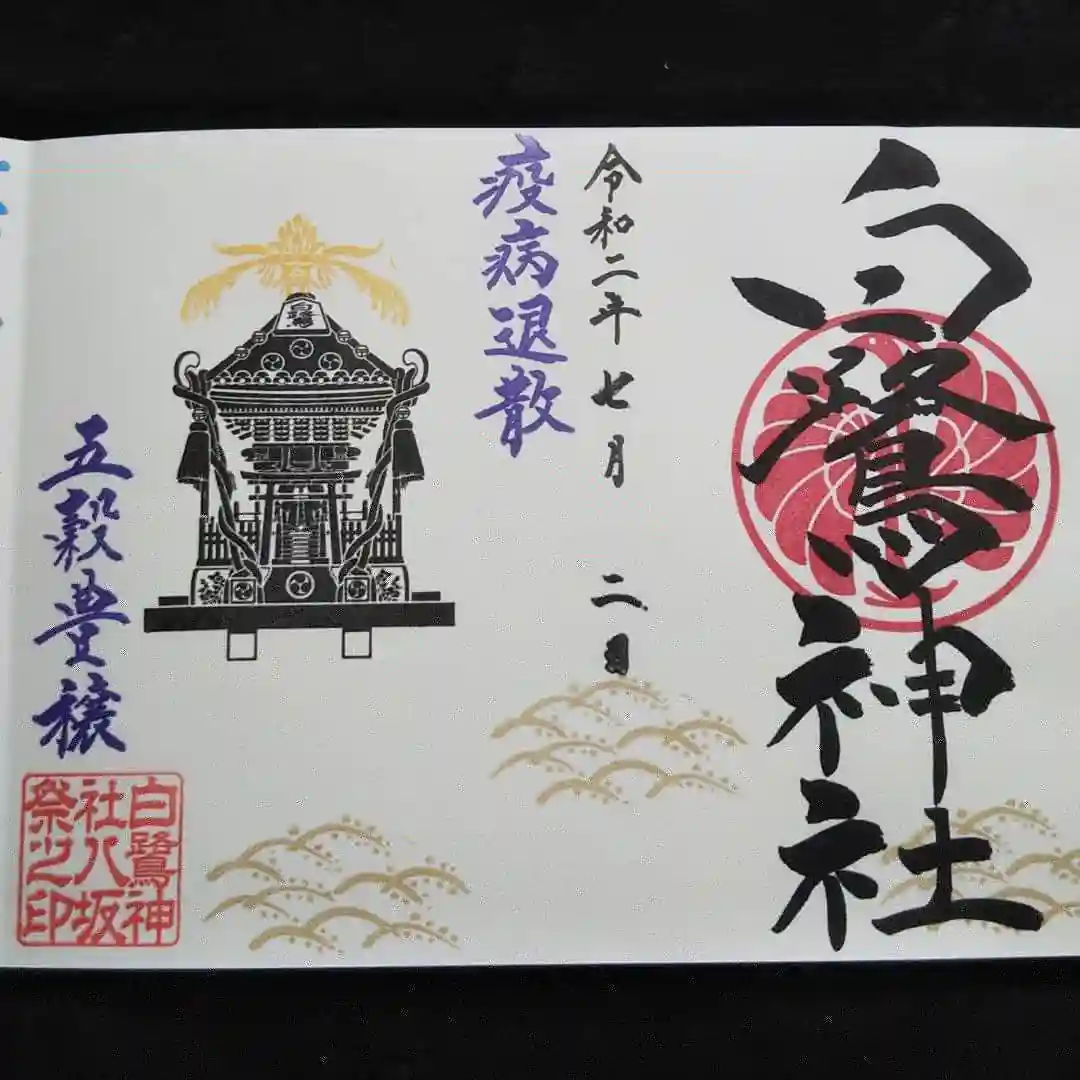 白鷺神社
令和二年七月二日
疫病退散
五穀豊穣
白鷺神
社八坂
祭之印